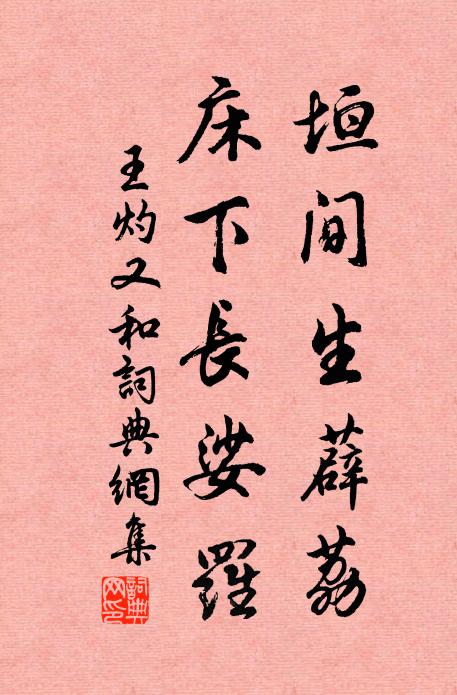 垣间生薜荔
床下長娑羅
王灼又和詞典網集
詞典网印